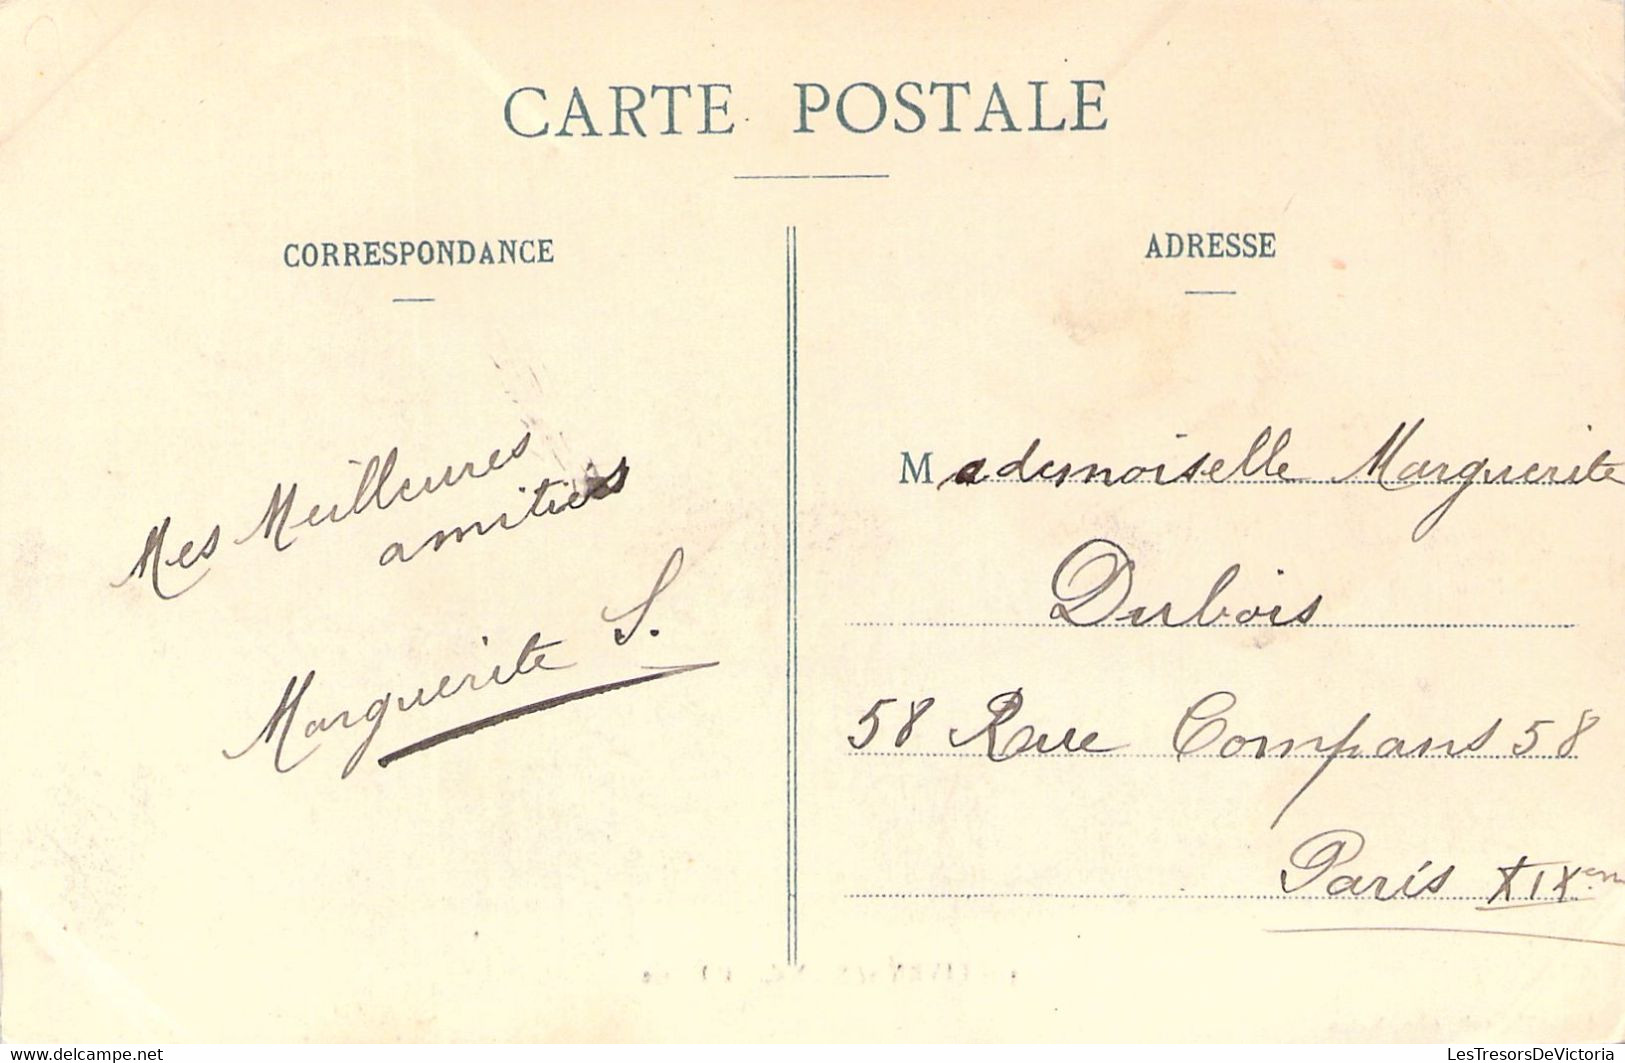 CARTE POSTALE
CORRESPONDANCE
Mes Meilleures
amitiés
Marguerite S.
ADRESSE
Mademoiselle Marguerite
Dubois
58 Rue Compans 58
Paris XIXem
www.delcampe.net
LesTresorsDeVictoria